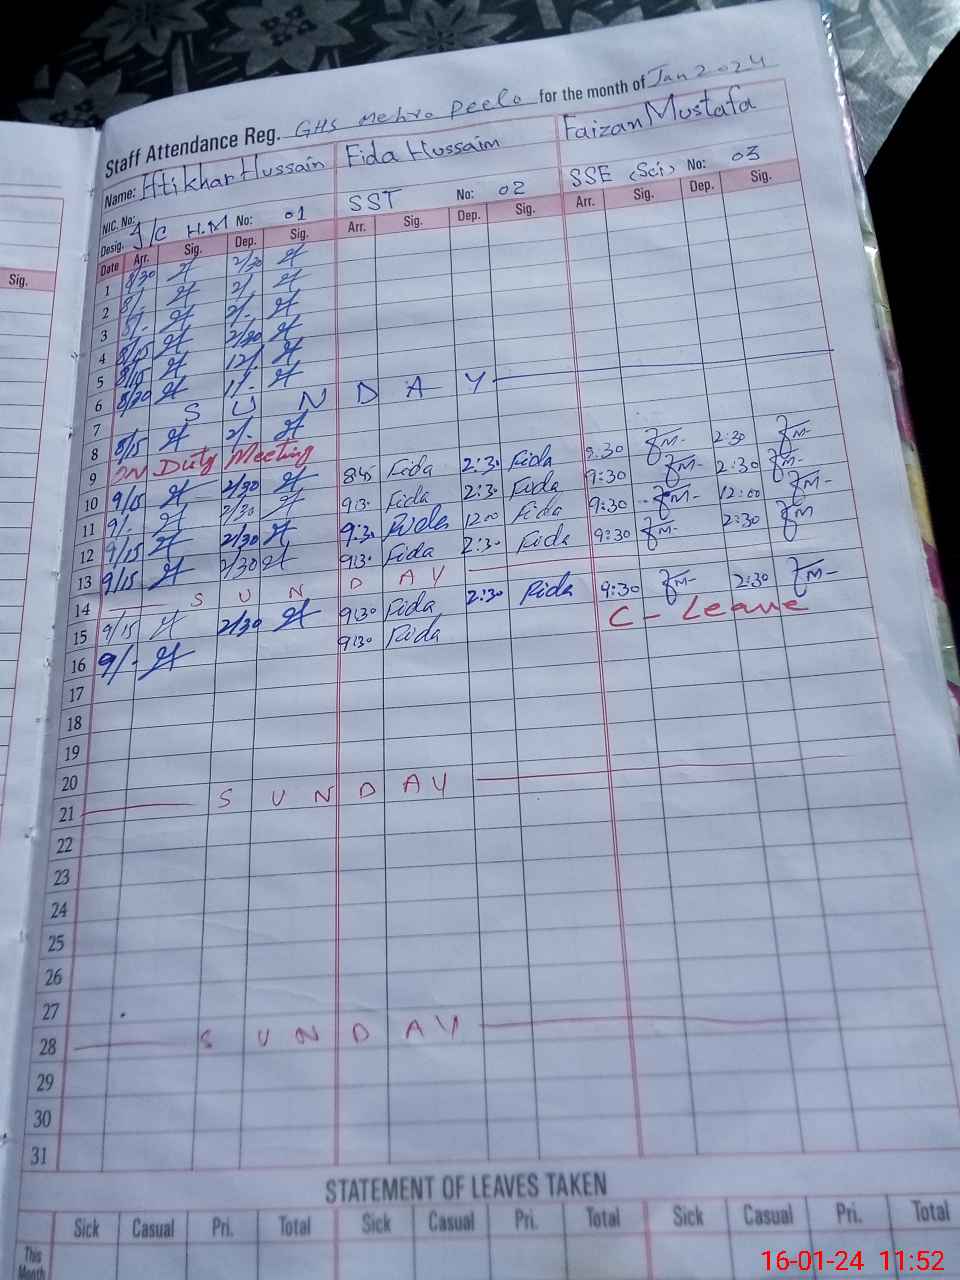 Staff Attendance Reg. GHS Mehro Peelo for the month of Jan 2024
Name: Iftikhar Hussain Fida Hussain Faizan Mustafa
NIC. No:
Desig. I/C H.M No: 01 SST No: 02 SSE (Sci) No: 03
Date Arr. Sig. Dep. Sig. Arr. Sig. Dep. Sig. Arr. Sig. Dep. Sig.
Sig.
1 8/30 2/30
2 8/- 2/
3 8/- 2/-
4 8/45 2/30
5 8/15 12/
6 8/20 1/-
7 S U N D A Y
8 8/15 2/-
9 ON Duty Meeting
10 9/15 2/30 845 Fida 2:3. Fida 9:30 2:30
11 9/- 2/30 9:3. Fida 2:3. Fida 9:30 2:30
12 9/15 2/30 9:3. Fida 1200 Fida 9:30 12:00
13 9/15 2/30 9:3. Fida 2:3. Fida 9:30 2:30
14 S U N D A Y
15 9/15 2/30 9:30 Fida 2:30 Fida 9:30 2:30
16 9/- 9:30 Fida C - Leave
17
18
19
20
21 S U N D A Y
22
23
24
25
26
27
28 S U N D A Y
29
30
31
STATEMENT OF LEAVES TAKEN
Sick Casual Pri. Total Sick Casual Pri. Total Sick Casual Pri. Total
This
Month
16-01-24 11:52